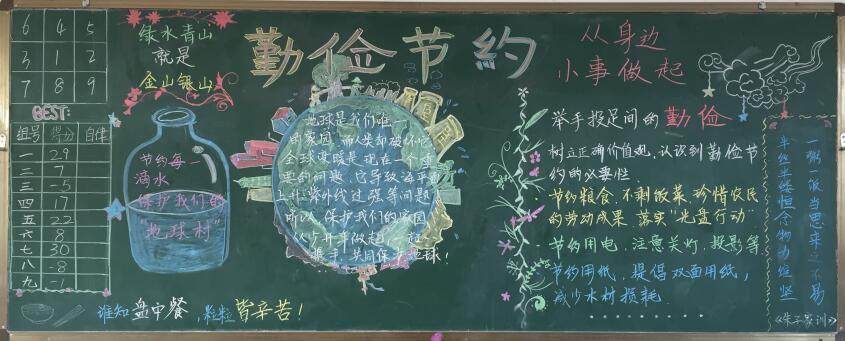 6 4 5
3 1 2
7 8 9
BEST:
组号 得分 自律
一 29
二 7
三 -5
四 17
五 22
六 8
七 30
八 -8
九 -1
绿水青山
就是
金山银山
节约每一
滴水
保护我们的
"地球村"
谁知盘中餐,粒粒皆辛苦!
勤俭节约
地球是我们唯一
的家园,而人类却破坏它
全球变暖是现在一个重
要的问题,它导致海平面
上升,紫外线过强等问题
所以,保护我们的家园
从少开车做起,一起
携手,共同保护地球!
从身边
小事做起
举手投足间的勤俭
树立正确价值观,认识到勤俭节
约的必要性.
节约粮食.不剩饭菜.珍惜农民
的劳动成果.落实"光盘行动"
节约用电,注意关灯,投影等
节约用纸,提倡双面用纸,
减少木材损耗
......
一粥一饭当思来之不易
半丝半缕恒念物力维坚
《朱子家训》